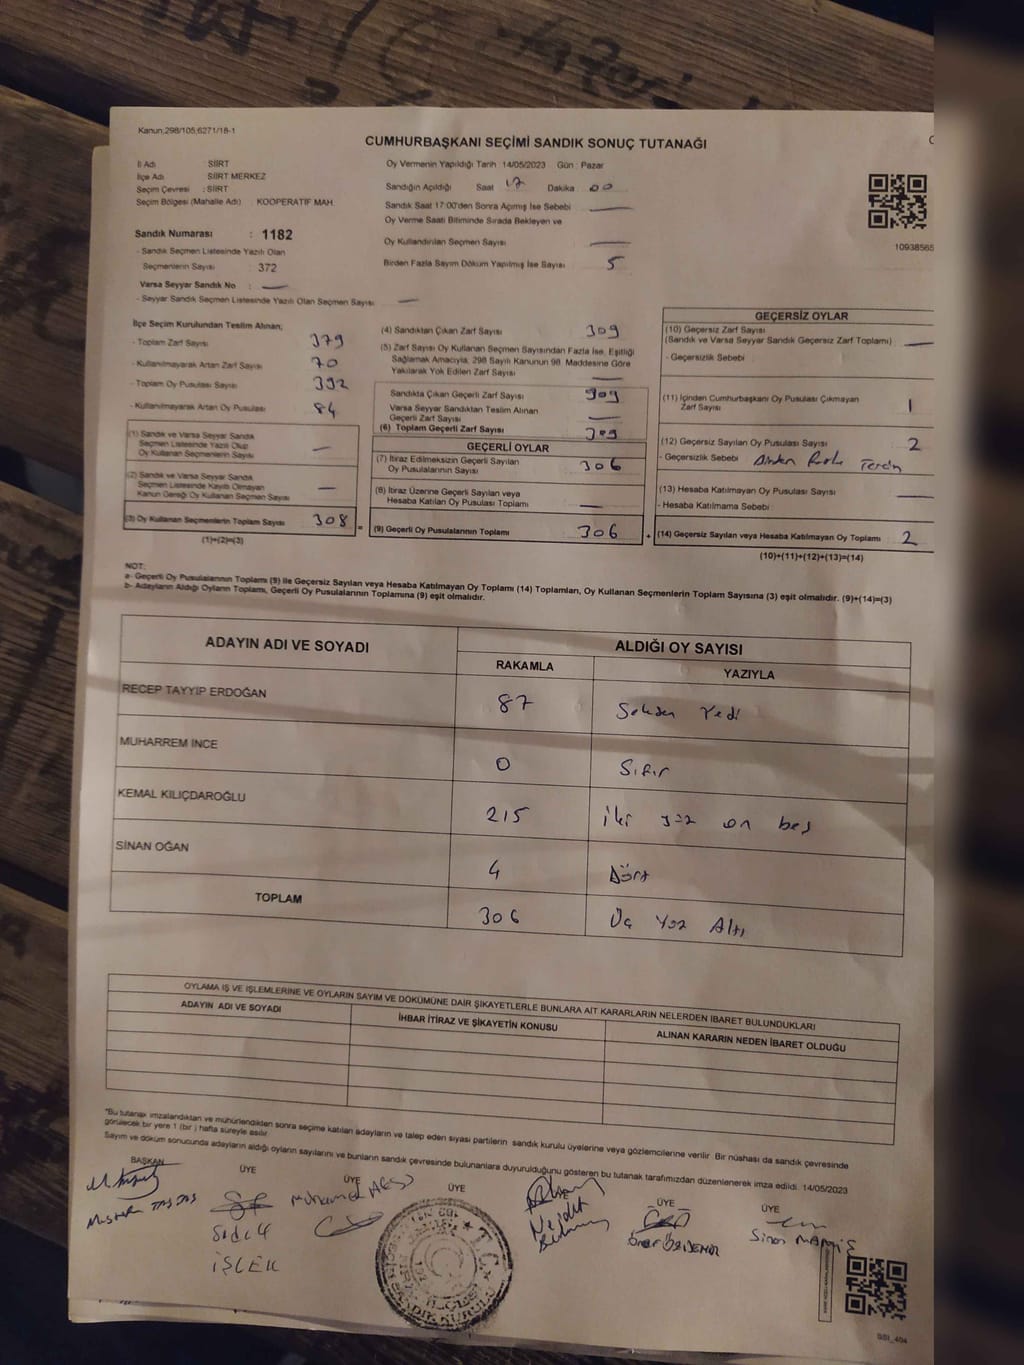 Kanun;298/105,6271/18-1
CUMHURBAŞKANI SEÇİMİ SANDIK SONUÇ TUTANAĞI
İl Adı SİİRT
İlçe Adı SİİRT MERKEZ
Seçim Çevresi : SİİRT
Seçim Bölgesi (Mahalle Adı) KOOPERATİF MAH.
Sandık Numarası : 1182
- Sandık Seçmen Listesinde Yazılı Olan
Seçmenlerin Sayısı : 372
Varsa Seyyar Sandık No : —
- Seyyar Sandık Seçmen Listesinde Yazılı Olan Seçmen Sayısı : —
Oy Vermenin Yapıldığı Tarih : 14/05/2023 Gün : Pazar
Sandığın Açıldığı Saat 17 Dakika 00
Sandık Saat 17:00'den Sonra Açımış İse Sebebi —
Oy Verme Saati Bitiminde Sırada Bekleyen ve
Oy Kullandırılan Seçmen Sayısı —
Birden Fazla Sayım Döküm Yapılmış İse Sayısı 5
10938565
İlçe Seçim Kurulundan Teslim Alınan;
- Toplam Zarf Sayısı 379
- Kullanılmayarak Artan Zarf Sayısı 70
- Toplam Oy Pusulası Sayısı 392
- Kullanılmayarak Artan Oy Pusulası 84
(1) Sandık ve Varsa Seyyar Sandık
Seçmen Listesinde Yazılı Olup
Oy Kullanan Seçmenlerin Sayısı —
(2) Sandık ve Varsa Seyyar Sandık
Seçmen Listesinde Kayıtlı Olmayan
Kanun Gereği Oy Kullanan Seçmen Sayısı —
(3) Oy Kullanan Seçmenlerin Toplam Sayısı 308
(1)+(2)=(3)
(4) Sandıktan Çıkan Zarf Sayısı 309
(5) Zarf Sayısı Oy Kullanan Seçmen Sayısından Fazla İse, Eşitliği
Sağlamak Amacıyla, 298 Sayılı Kanunun 98. Maddesine Göre
Yakılarak Yok Edilen Zarf Sayısı —
Sandıkta Çıkan Geçerli Zarf Sayısı 309
Varsa Seyyar Sandıktan Teslim Alınan
Geçerli Zarf Sayısı —
(6) Toplam Geçerli Zarf Sayısı 309
GEÇERLİ OYLAR
(7) İtiraz Edilmeksizin Geçerli Sayılan
Oy Pusulalarının Sayısı 306
(8) İtiraz Üzerine Geçerli Sayılan veya
Hesaba Katılan Oy Pusulası Toplamı —
(9) Geçerli Oy Pusulalarının Toplamı 306
GEÇERSİZ OYLAR
(10) Geçersiz Zarf Sayısı
(Sandık ve Varsa Seyyar Sandık Geçersiz Zarf Toplamı) —
- Geçersizlik Sebebi
(11) İçinden Cumhurbaşkanı Oy Pusulası Çıkmayan
Zarf Sayısı 1
(12) Geçersiz Sayılan Oy Pusulası Sayısı 2
- Geçersizlik Sebebi Birden Fazla Tercih
(13) Hesaba Katılmayan Oy Pusulası Sayısı —
- Hesaba Katılmama Sebebi
(14) Geçersiz Sayılan veya Hesaba Katılmayan Oy Toplamı 2
(10)+(11)+(12)+(13)=(14)
NOT:
a- Geçerli Oy Pusulalarının Toplamı (9) ile Geçersiz Sayılan veya Hesaba Katılmayan Oy Toplamı (14) Toplamları, Oy Kullanan Seçmenlerin Toplam Sayısına (3) eşit olmalıdır. (9)+(14)=(3)
b- Adayların Aldığı Oyların Toplamı, Geçerli Oy Pusulalarının Toplamına (9) eşit olmalıdır.
ADAYIN ADI VE SOYADI ALDIĞI OY SAYISI
RAKAMLA YAZIYLA
RECEP TAYYİP ERDOĞAN 87 Seksen Yedi
MUHARREM İNCE 0 Sıfır
KEMAL KILIÇDAROĞLU 215 iki yüz on beş
SİNAN OĞAN 4 Dört
TOPLAM 306 Üç Yüz Altı
OYLAMA İŞ VE İŞLEMLERİNE VE OYLARIN SAYIM VE DÖKÜMÜNE DAİR ŞİKAYETLERLE BUNLARA AİT KARARLARIN NELERDEN İBARET BULUNDUKLARI
ADAYIN ADI VE SOYADI İHBAR İTİRAZ VE ŞİKAYETİN KONUSU ALINAN KARARIN NEDEN İBARET OLDUĞU
*Bu tutanak imzalandıktan ve mühürlendikten sonra seçime katılan adayların ve talep eden siyasi partilerin sandık kurulu üyelerine veya gözlemcilerine verilir. Bir nüshası da sandık çevresinde
görülecek bir yere 1 (bir) hafta süreyle asılır.
Sayım ve döküm sonucunda adayların aldığı oyların sayılarını ve bunların sandık çevresinde bulunanlara duyurulduğunu gösteren bu tutanak tarafımızdan düzenlenerek imza edildi. 14/05/2023
BAŞKAN ÜYE ÜYE ÜYE ÜYE ÜYE
Sıdık
İŞLEK
Ömer ÖZDEMİR
Sinan